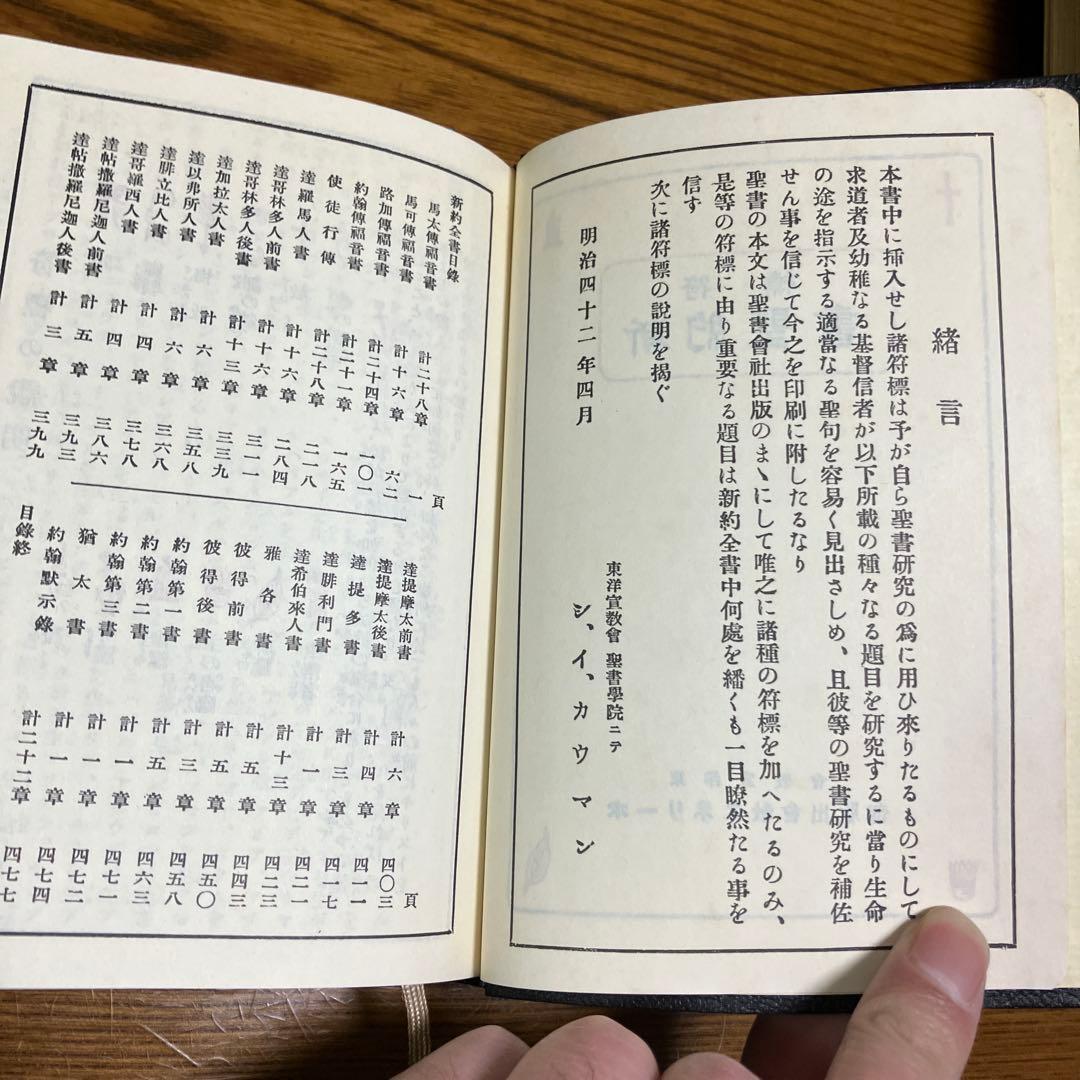 緒言
本書中に挿入せし諸符標は予が自ら聖書研究の爲に用ひ來りたるものにして
求道者及幼稚なる基督信者が以下所載の種々なる題目を研究するに當り生命
の途を指示する適當なる聖句を容易く見出さしめ、且彼等の聖書研究を補佐
せん事を信じて今之を印刷に附したるなり
聖書の本文は聖書會社出版のまゝにして唯之に諸種の符標を加へたるのみ、
是等の符標に由り重要なる題目は新約全書中何處を繙くも一目瞭然たる事を
信す
次に諸符標の說明を揭ぐ
明治四十二年四月
東洋宣敎會 聖書學院ニテ
シ、イ、カウマン
新約全書目錄
頁
馬太傳福音書 計二十八章 一
馬可傳福音書 計十六章 六二
路加傳福音書 計二十四章 一〇一
約翰傳福音書 計二十一章 一六五
使徒行傳 計二十八章 二一八
達羅馬人書 計十六章 二八四
達哥林多人前書 計十六章 三一一
達哥林多人後書 計十三章 三三九
達加拉太人書 計六章 三五八
達以弗所人書 計六章 三六八
達腓立比人書 計四章 三七八
達哥羅西人書 計四章 三八六
達帖撒羅尼迦人前書 計五章 三九三
達帖撒羅尼迦人後書 計三章 三九九
頁
達提摩太前書 計六章 四〇三
達提摩太後書 計四章 四一一
達提多書 計三章 四一七
達腓利門書 計一章 四二一
達希伯來人書 計十三章 四二三
雅各書 計五章 四四三
彼得前書 計五章 四五〇
彼得後書 計三章 四五八
約翰第一書 計五章 四六三
約翰第二書 計一章 四七一
約翰第三書 計一章 四七二
猶太書 計一章 四七四
約翰默示錄 計二十二章 四七七
目錄終